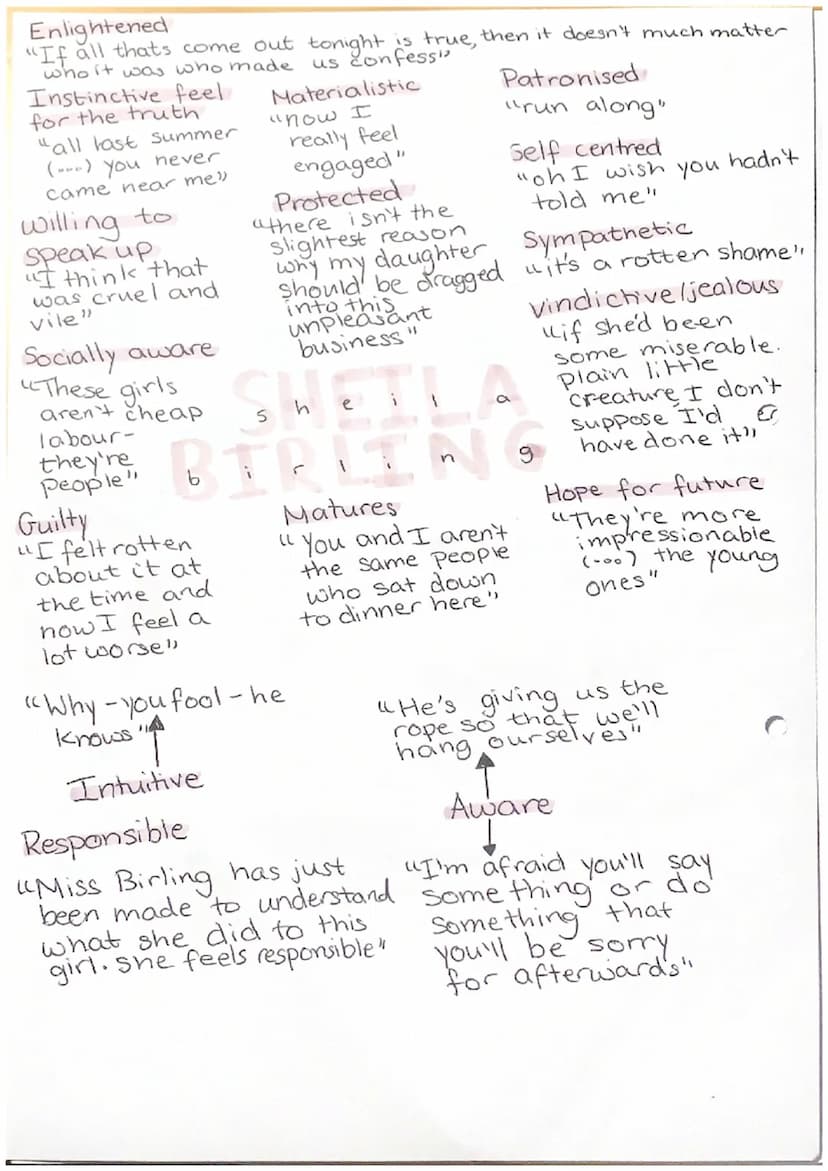 Enlightened
"If all thats come out tonight is true, then it doesn't much matter
who it was who made us confess"
Instinctive feel
for the truth
"all last summer
(---) you never
came near me"
Materialistic
"now I
really feel
engaged"
Patronised
"run along"
Self centred
"oh I wish you hadn't
told me"
Willing to
speak up
"I think that
was cruel and
vile"
Protected
"there isn't the
slightest reason
why my daughter
should be dragged
into this
unpleasant
business"
Sympathetic
"it's a rotten shame"
Vindictive/jealous
"if she'd been
some miserable.
plain little
creature I don't
suppose I'd
have done it"
Socially aware
"These girls
aren't cheap
labour-
they're
people"
SHEILA
sheila
BIRLING
birling
Guilty
"I felt rotten
about it at
the time and
now I feel a
lot worse"
Matures
"You and I aren't
the same people
who sat down
to dinner here"
Hope for future
"They're more
impressionable
(-oo) the young
ones"
"Why-you fool-he
knows"
Intuitive
"He's giving us the
rope so that we'll
hang ourselves"
Aware
"I'm afraid you'll say
something or do
something that
you'll be sorry
for afterwards"
Responsible
"Miss Birling has just
been made to understand
what she did to this
girl. She feels responsible"